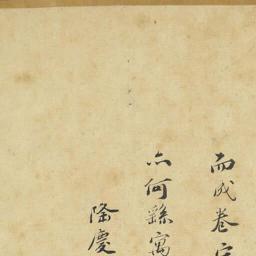 而成卷
亦何繇寓
隆慶